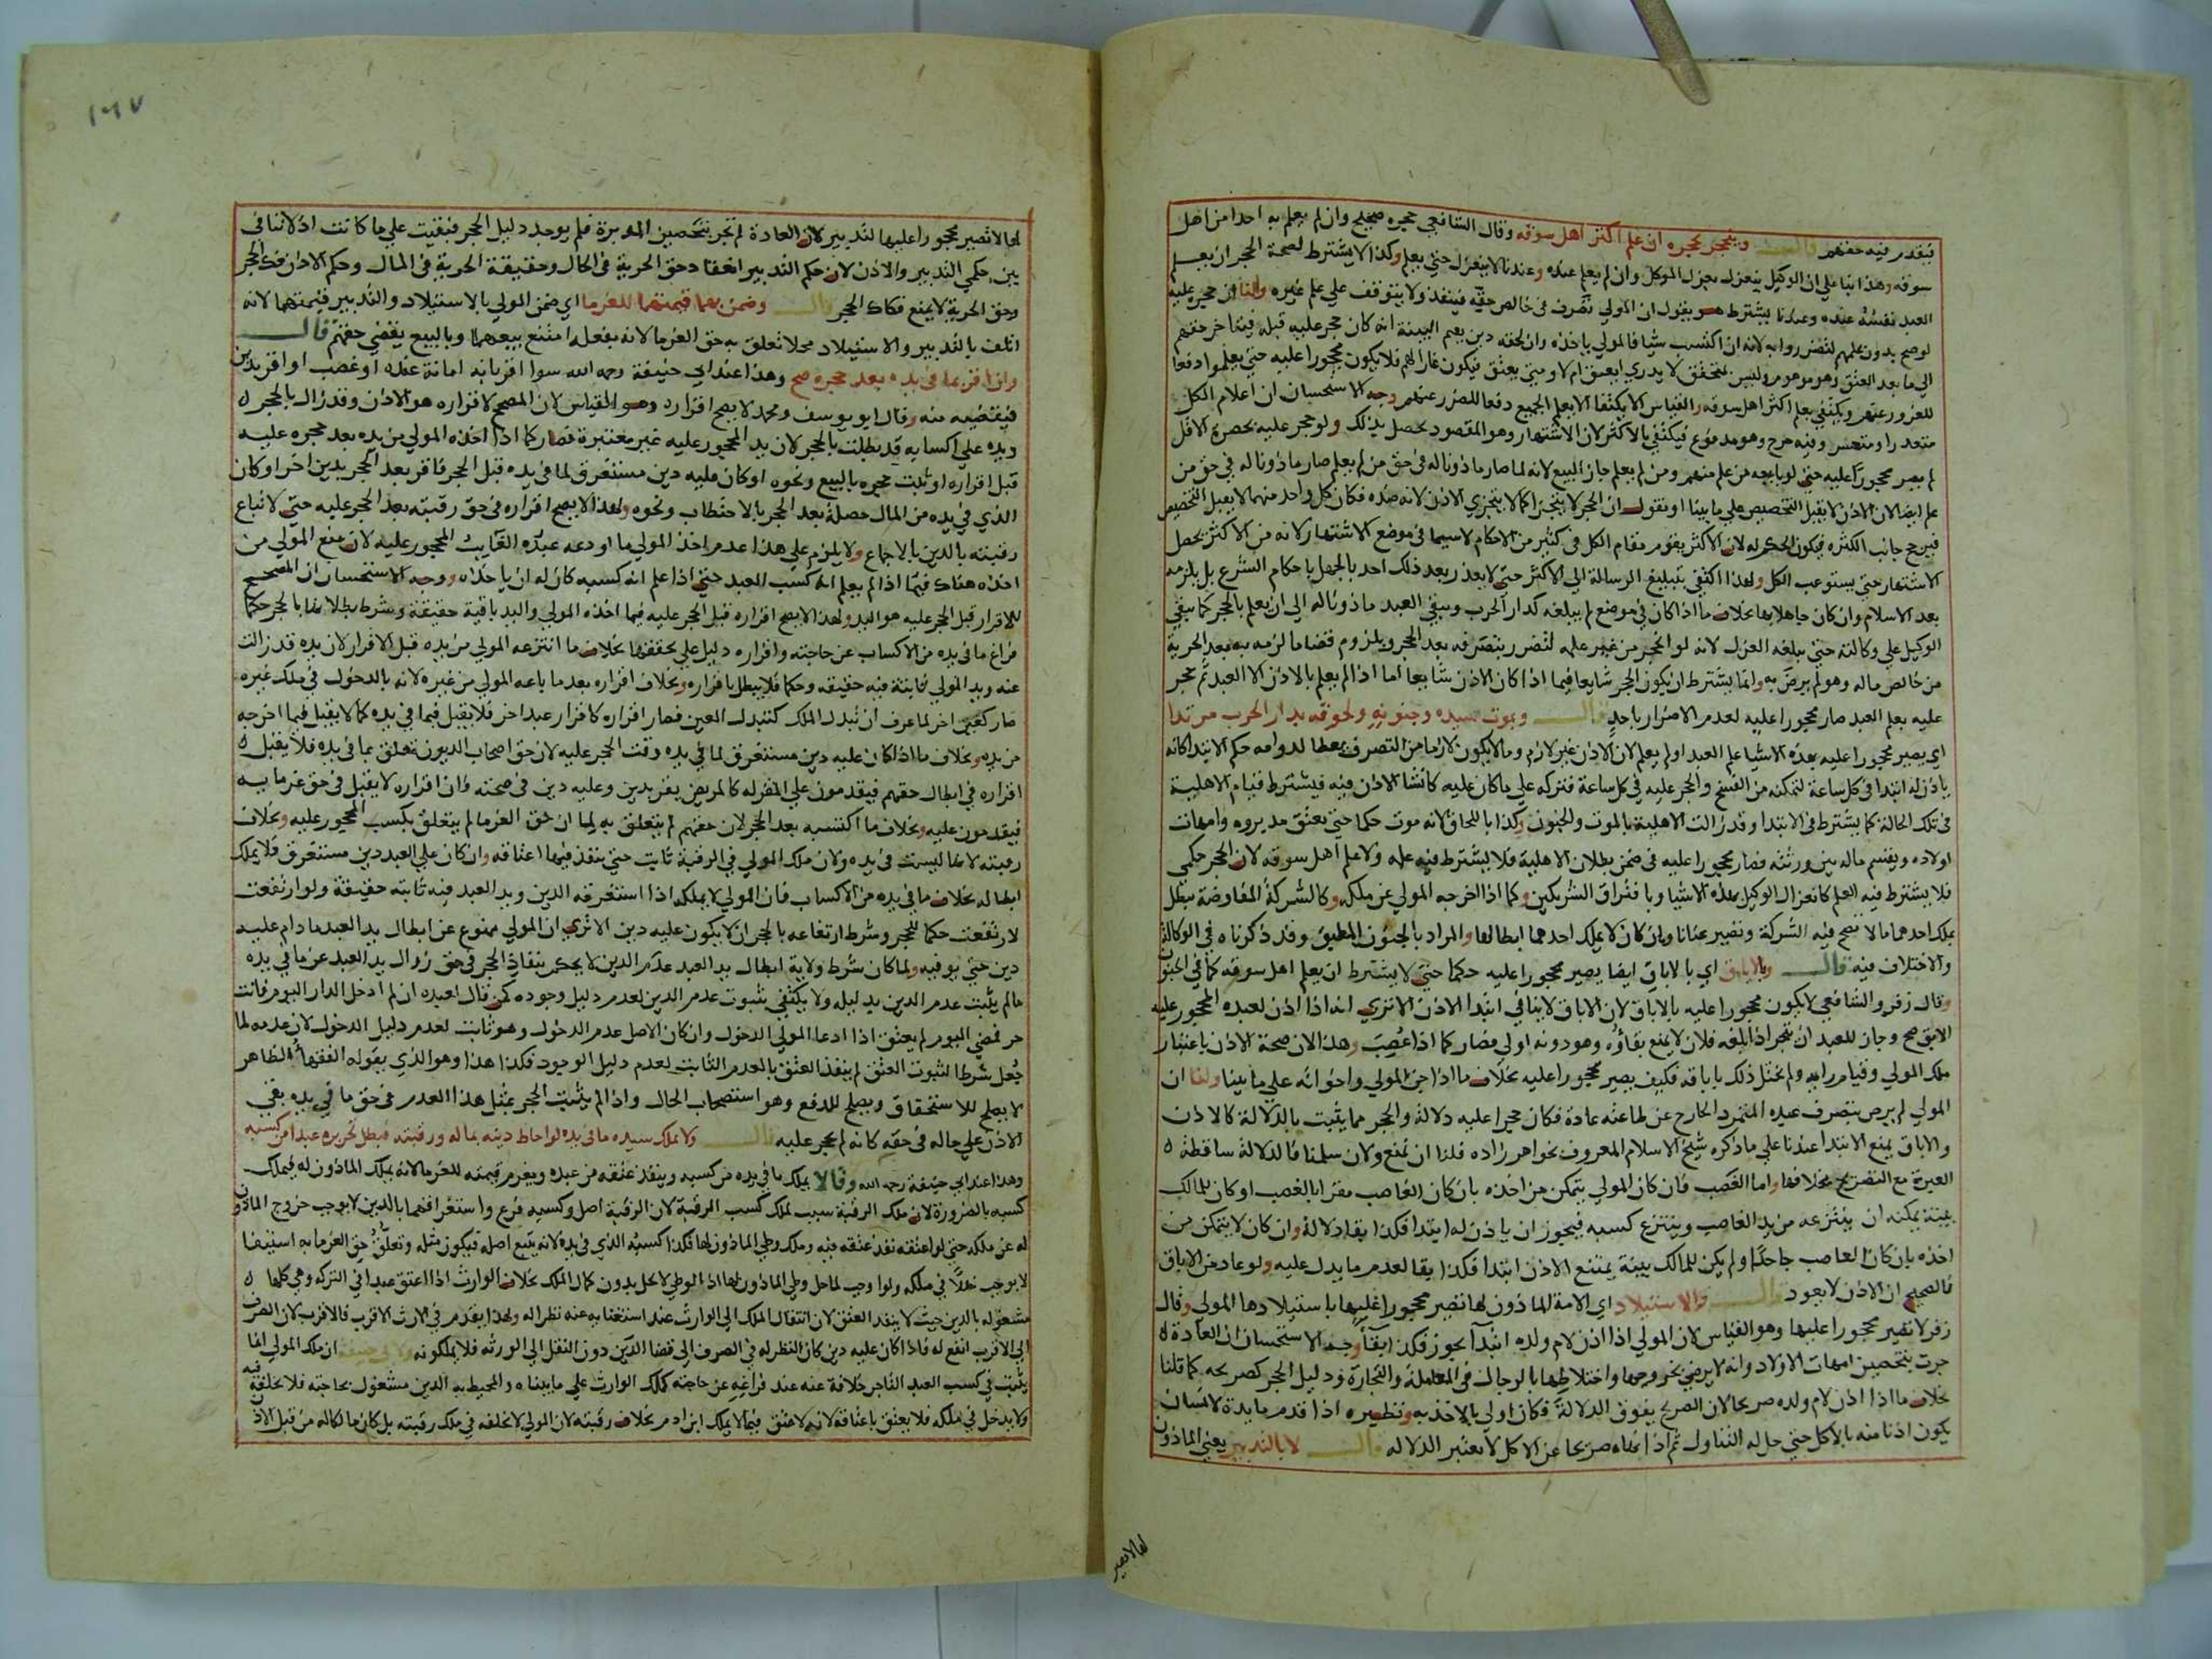 فيقدر فيه حقهم قال وينحجر بحجره ان علم اكثر اهل سوقه وقال الشافعي حجره صحيح وان لم يعلم به احدا من اهل
سوقه وهذا بناء علي ان الوكيل ينعزل بعزل الموكل وان لم يعلم عنده وعندنا لا ينعزل حتي يعلم وكذا لا يشترط لصحة الحجر ان يعلم
العبد نفسه عنده وعندنا يشترط هو يقول ان المولي تصرف في خالص حقه فينفذ ولا يتوقف علي علم غيره ولنا ان حجره عليه
لو صح بدون علمهم لتضرروا به لانه ان اكتسب شيا فالمولي ياخذه وان لحقه دين يقيم البينة انه كان حجر عليه قبله فيتاخر حقهم
الي ما بعد العتق وهو موهوم وليس بمتحقق لا يدري ايعتق ام لا ومتي يعتق فيكون غارا لهم فلا يكون محجورا عليه حتي يعلموا دفعا
للغرور عنهم ويكتفي بعلم اكثر اهل سوقه والقياس الا يكتفا الا بعلم الجميع دفعا للضرر عنهم وجه الاستحسان ان اعلام الكل
متعذر او متعسر وفيه حرج وهو مدفوع فيكتفي بالاكثر لان الاشتهار وهو المقصود يحصل بذلك ولو حجر عليه بحضرة الاقل
لم يصر محجورا عليه حتي لو بايعه من علم منهم ومن لم يعلم جاز البيع لانه لما صار ماذونا له في حق من لم يعلم صار ماذونا له في حق من
علم ايضا لان الاذن لا يقبل التخصيص علي ما بينا او نقول ان الحجر لا يتجزا كما لا يتجزي الاذن لانه ضده فكان كل واحد منهما لا يقبل التخصيص
فيرجح جانب الكثره فيكون الحكم له لان الاكثر يقوم مقام الكل في كثير من الاحكام لاسيما في موضع الاشتهار لانه من الاكثر يحصل
الاشتهار حتي يستوعب الكل ولهذا اكتفي بتبليغ الرسالة الي الاكثر حتي لا يعذر بعد ذلك احد بالجهل باحكام الشرع بل يلزمه
بعد الاسلام وان كان جاهلا بها بخلاف ما اذا كان في موضع لم يبلغه كدار الحرب ويبقي العبد ماذونا له الي ان يعلم بالحجر كما يبقي
الوكيل علي وكالته حتي يبلغه العزل لانه لو انحجر من غير علمه لتضرر بتصرفه بعد الحجر ويلزوم قضا ما لزمه به بعد الحرية
من خالص ماله وهو لم يرض به وانما يشترط ان يكون الحجر شايعا فيما اذا كان الاذن شايعا اما اذا لم يعلم بالاذن الا العبد ثم حجر
عليه بعلم العبد صار محجورا عليه لعدم الاضرار باحد قال وبموت سيده وجنونه ولحوقه بدار الحرب مرتدا
اي يصير محجورا عليه بهذه الاشيا علم العبد او لم يعلم لان الاذن غير لازم وما لا يكون لازما من التصرف يعطا لدوامه حكم الابتدا كانه
ياذن له ابتدا في كل ساعة لتمكنه من الفسخ والحجر عليه في كل ساعة فتركه علي ما كان عليه كانشا الاذن فيه فيشترط قيام الاهلية
في تلك الحالة كما يشترط في الابتدا وقد زالت الاهلية بالموت والجنون وكذا باللحاق لانه موت حكما حتي يعتق مدبروه وامهات
اولاده ويقسم ماله بين ورثته فصار محجورا عليه في ضمن بطلان الاهلية فلا يشترط فيه علمه ولا علم اهل سوقه لان الحجر حكمي
فلا يشترط فيه العلم كانعزال الوكيل بهذه الاشيا وبافتراق الشريكين وكما اذا اخرجه المولي عن ملكه وكالشركة المفاوضة تبطل
بملك احدهما ما لا تصح فيه الشركة وتصير عنانا وان كان لا يملك احدهما ابطالها والمراد بالجنون المطبق وقد ذكرناه في الوكالة
والاختلاف فيه قال وبالاباق اي بالاباق ايضا يصير محجورا عليه حكما حتي لا يشترط ان يعلم اهل سوقه كما في الجنون
وقال زفر والشافعي لا يكون محجورا عليه بالاباق لان الاباق لا ينافي ابتدا الاذن الا تري انه اذا اذن لعبده المحجور عليه
الابق صح وجاز للعبد ان يتجر اذا بلغه فلان لا يمنع بقاؤه وهو دونه اولي فصار كما اذا غصب وهذا لان صحة الاذن باعتبار
ملك المولي وقيام رايه ولم يختل ذلك باباقه فكيف يصير محجورا عليه بخلاف ما اذا جن المولي واخواته علي ما بينا ولنا ان
المولي لم يرض بتصرف عبده المتمرد الخارج عن طاعته عادة فكان حجرا عليه دلالة والحجر مما يثبت بالدلالة كالاذن
والاباق يمنع الابتدا عندنا علي ما ذكره شيخ الاسلام المعروف بخواهر زاده فلنا ان نمنع ولان سلمنا فالدلالة ساقطة
العبرة مع التصريح بخلافها واما الغصب فان كان المولي يتمكن من اخذه بان كان الغاصب مقرا بالغصب او كان للمالك
بينة يمكنه ان ينتزعه من يد الغاصب وينتزع كسبه فيجوز ان ياذن له ابتدا فكذا بقا دلالة وان كان لا يتمكن من
اخذه بان كان الغاصب جاحدا ولم يكن للمالك بينة يمتنع الاذن ابتدا فكذا بقا لعدم ما يدل عليه ولو عاد من الاباق
فالصحيح ان الاذن لا يعود قال والاستيلاد اي الامة الماذون لها تصير محجورا عليها باستيلادها المولي وقال
زفر لا تصير محجورا عليها وهو القياس لان المولي اذا اذن لام ولده ابتدا يجوز فكذا بقا وجه الاستحسان ان العادة
جرت بتحصين امهات الاولاد وانه لا يرضي بخروجها واختلاطها بالرجال في المعاملة والتجارة ودليل الحجر كصريحه كما قلنا
بخلاف ما اذا اذن لام ولده صريحا لان الصريح يفوق الدلالة فكان اولي بالاخذ به ونظيره اذا قدم مايدة لانسان
يكون اذنا منه بالاكل حتي حل له التناول ثم اذا نهاه صريحا عن الاكل لا يعتبر الدلاله قال لا بالتدبير يعني الماذون
لها لا تصير
١٦٧
لها لا تصير محجورا عليها لتدبير لان العادة لم تجر بتحصين المدبرة فلم يوجد دليل الحجر فبقيت علي ما كانت اذ لا تنافي
بين حكمي التدبير والاذن لان حكم التدبير انعقاد حق الحرية في الحال وحقيقة الحرية في المال وحكم الاذن فك الحجر
وحق الحرية لا يمنع فكاك الحجر قال وضمن بهما قيمتهما للغرما اي ضمن المولي بالاستيلاد والتدبير قيمتهما لانه
اتلف بالتدبير والاستيلاد محلا تعلق به حق الغرما لانه بفعله امتنع بيعهما وبالبيع يقضي حقهم قال
وان اقر بما في يده بعد حجره صح وهذا عند ابي حنيفة رحمه الله سوا اقر بانه امانة عنده او غصب او اقر بدين
فيقضيه منه وقال ابو يوسف ومحمد لا يصح اقراره وهو القياس لان المصحح لاقراره هو الاذن وقد زال بالحجر
ويده علي اكسابه قد بطلت بالحجر لان يد المحجور عليه غير معتبرة فصار كما اذا اخذه المولي من يده بعد حجره عليه
قبل اقراره او ثبت حجره بالبيع ونحوه او كان عليه دين مستغرق لما في يده قبل الحجر فاقر بعد الحجر بدين اخر او كان
الذي في يده من المال حصله بعد الحجر بالاحتطاب ونحوه ولهذا لا يصح اقراره في حق رقبته بعد الحجر عليه حتي لا تباع
رقبته بالدين بالاجماع ولا يلزم علي هذا عدم اخذ المولي ما اودعه عبده الغايب المحجور عليه لان منع المولي من
اخذه هناك فيما اذا لم يعلم انه كسب العبد حتي اذا علم انه كسبه كان له ان ياخذه ووجه الاستحسان ان المصحح
للاقرار قبل الحجر عليه هو اليد ولهذا لا يصح اقراره قبل الحجر عليه فيما اخذه المولي واليد باقية حقيقة وشرط بطلانها بالحجر حكما
فراغ ما في يده من الاكساب عن حاجته واقراره دليل علي تحققها بخلاف ما انتزعه المولي من يده قبل الاقرار لان يده قد زالت
عنه ويد المولي ثابتة فيه حقيقه وحكما فلا يبطل باقراره وبخلاف اقراره بعد ما باعه المولي من غيره لانه بالدخول في ملك غيره
صار كعين اخر لما عرف ان تبدل الملك كتبدل العين فصار اقراره كاقرار عبد اخر فلا يقبل فيما في يده كما لا يقبل فيما اخرجه
من يده وبخلاف ما اذا كان عليه دين مستغرق لما في يده وقت الحجر عليه لان حق اصحاب الديون تعلق بما في يده فلا يقبل
اقراره في ابطال حقهم فيقدمون علي المقر له كالمريض يقر بدين وعليه دين في صحته فان اقراره لا يقبل في حق غرمايه
فيقدمون عليه وبخلاف ما اكتسبه بعد الحجر لان حقهم لم يتعلق به لما ان حق الغرما لم يتعلق بكسب المحجور عليه وبخلاف
رقبته لانها ليست في يده ولان ملك المولي في الرقبة ثابت حتي ينفذ فيها اعتاقه وان كان علي العبد دين مستغرق فلا يملك
ابطاله بخلاف ما في يده من الاكساب فان المولي لا يملكه اذا استغرقه الدين ويد العبد فيه ثابته حقيقة ولو ارتفعت
لارتفعت حكما للحجر وشرط ارتفاعه بالحجر ان لا يكون عليه دين الا تري ان المولي ممنوع عن ابطال يد العبد ما دام عليه
دين حتي يوفيه ولما كان شرط ولاية ابطال يد العبد عدم الدين لا يحكم بنفاذ الحجر في حق زوال يد العبد عن ما في يده
مالم يثبت عدم الدين بدليله ولا يكتفي بثبوت عدم الدين لعدم دليل وجوده كمن قال لعبده ان لم ادخل الدار اليوم فانت
حر فمضي اليوم لم يعتق اذا ادعا المولي الدخول وان كان الاصل عدم الدخول وهو ثابت لعدم دليل الدخول لان عدمه لما
جعل شرطا لثبوت العتق لم ينفذ العتق بالعدم الثابت لعدم دليل الوجود فكذا هذا وهو الذي يقوله الفقها الظاهر
لا يصلح للاستحقاق ويصلح للدفع وهو استصحاب الحال واذا لم يثبت الحجر بمثل هذا العدم في حق ما في يده بقي
الاذن علي حاله في حقه كانه لم يحجر عليه قال ولا يملك سيده ما في يده لو احاط دينه بماله ورقبته فبطل تحريره عبدا من كسبه
وهذا عند ابي حنيفة رحمه الله وقالا يملك ما في يده من كسبه وينفذ عتقه من عبده ويغرم قيمته للغرما لانه يملك الماذون له فيملك
كسبه بالضرورة لان ملك الرقبة سبب لملك كسب الرقبة لان الرقبة اصل وكسبه فرع واستغراقهما بالدين لا يوجب خروج الماذون
له عن ملكه حتي لو اعتقه نفذ عتقه فيه وملك وطي الماذون لها فكذا كسبه الذي في يده لانه يتبع اصله فيكون مثله وتعلق حق الغرما به استيفا
لا يوجب خللا في ملكه ولو اوجب لما حل وطي الماذون لها اذ الوطي لا يحل بدون كمال الملك بخلاف الوارث اذا اعتق عبدا في التركه وهي كلها
مشغوله بالدين حيث لا ينفذ العتق لان انتقال الملك الي الوارث عند استغنايه عنه نظرا له ولهذا يقدم في الارث الاقرب فالاقرب لان الصرف
الي الاقرب انفع له فاذا كان عليه دين كان النظر له في الصرف الي قضا الدين دون النقل الي الورثه فلا يملكونه ولابي حنيفه ان ملك المولي انما
يثبت في كسب العبد التاجر خلافة عنه عند فراغه عن حاجته كملك الوارث علي ما بيناه والمحيط به الدين مشغول بحاجته فلا يخلفه فيه
ولا يدخل في ملكه فلا يعتق باعتاقه لانه لا عتق فيما لا يملك ابن ادم بخلاف رقبته لان المولي لا يخلفه في ملك رقبته بل كان مالكا له من قبل الاذن